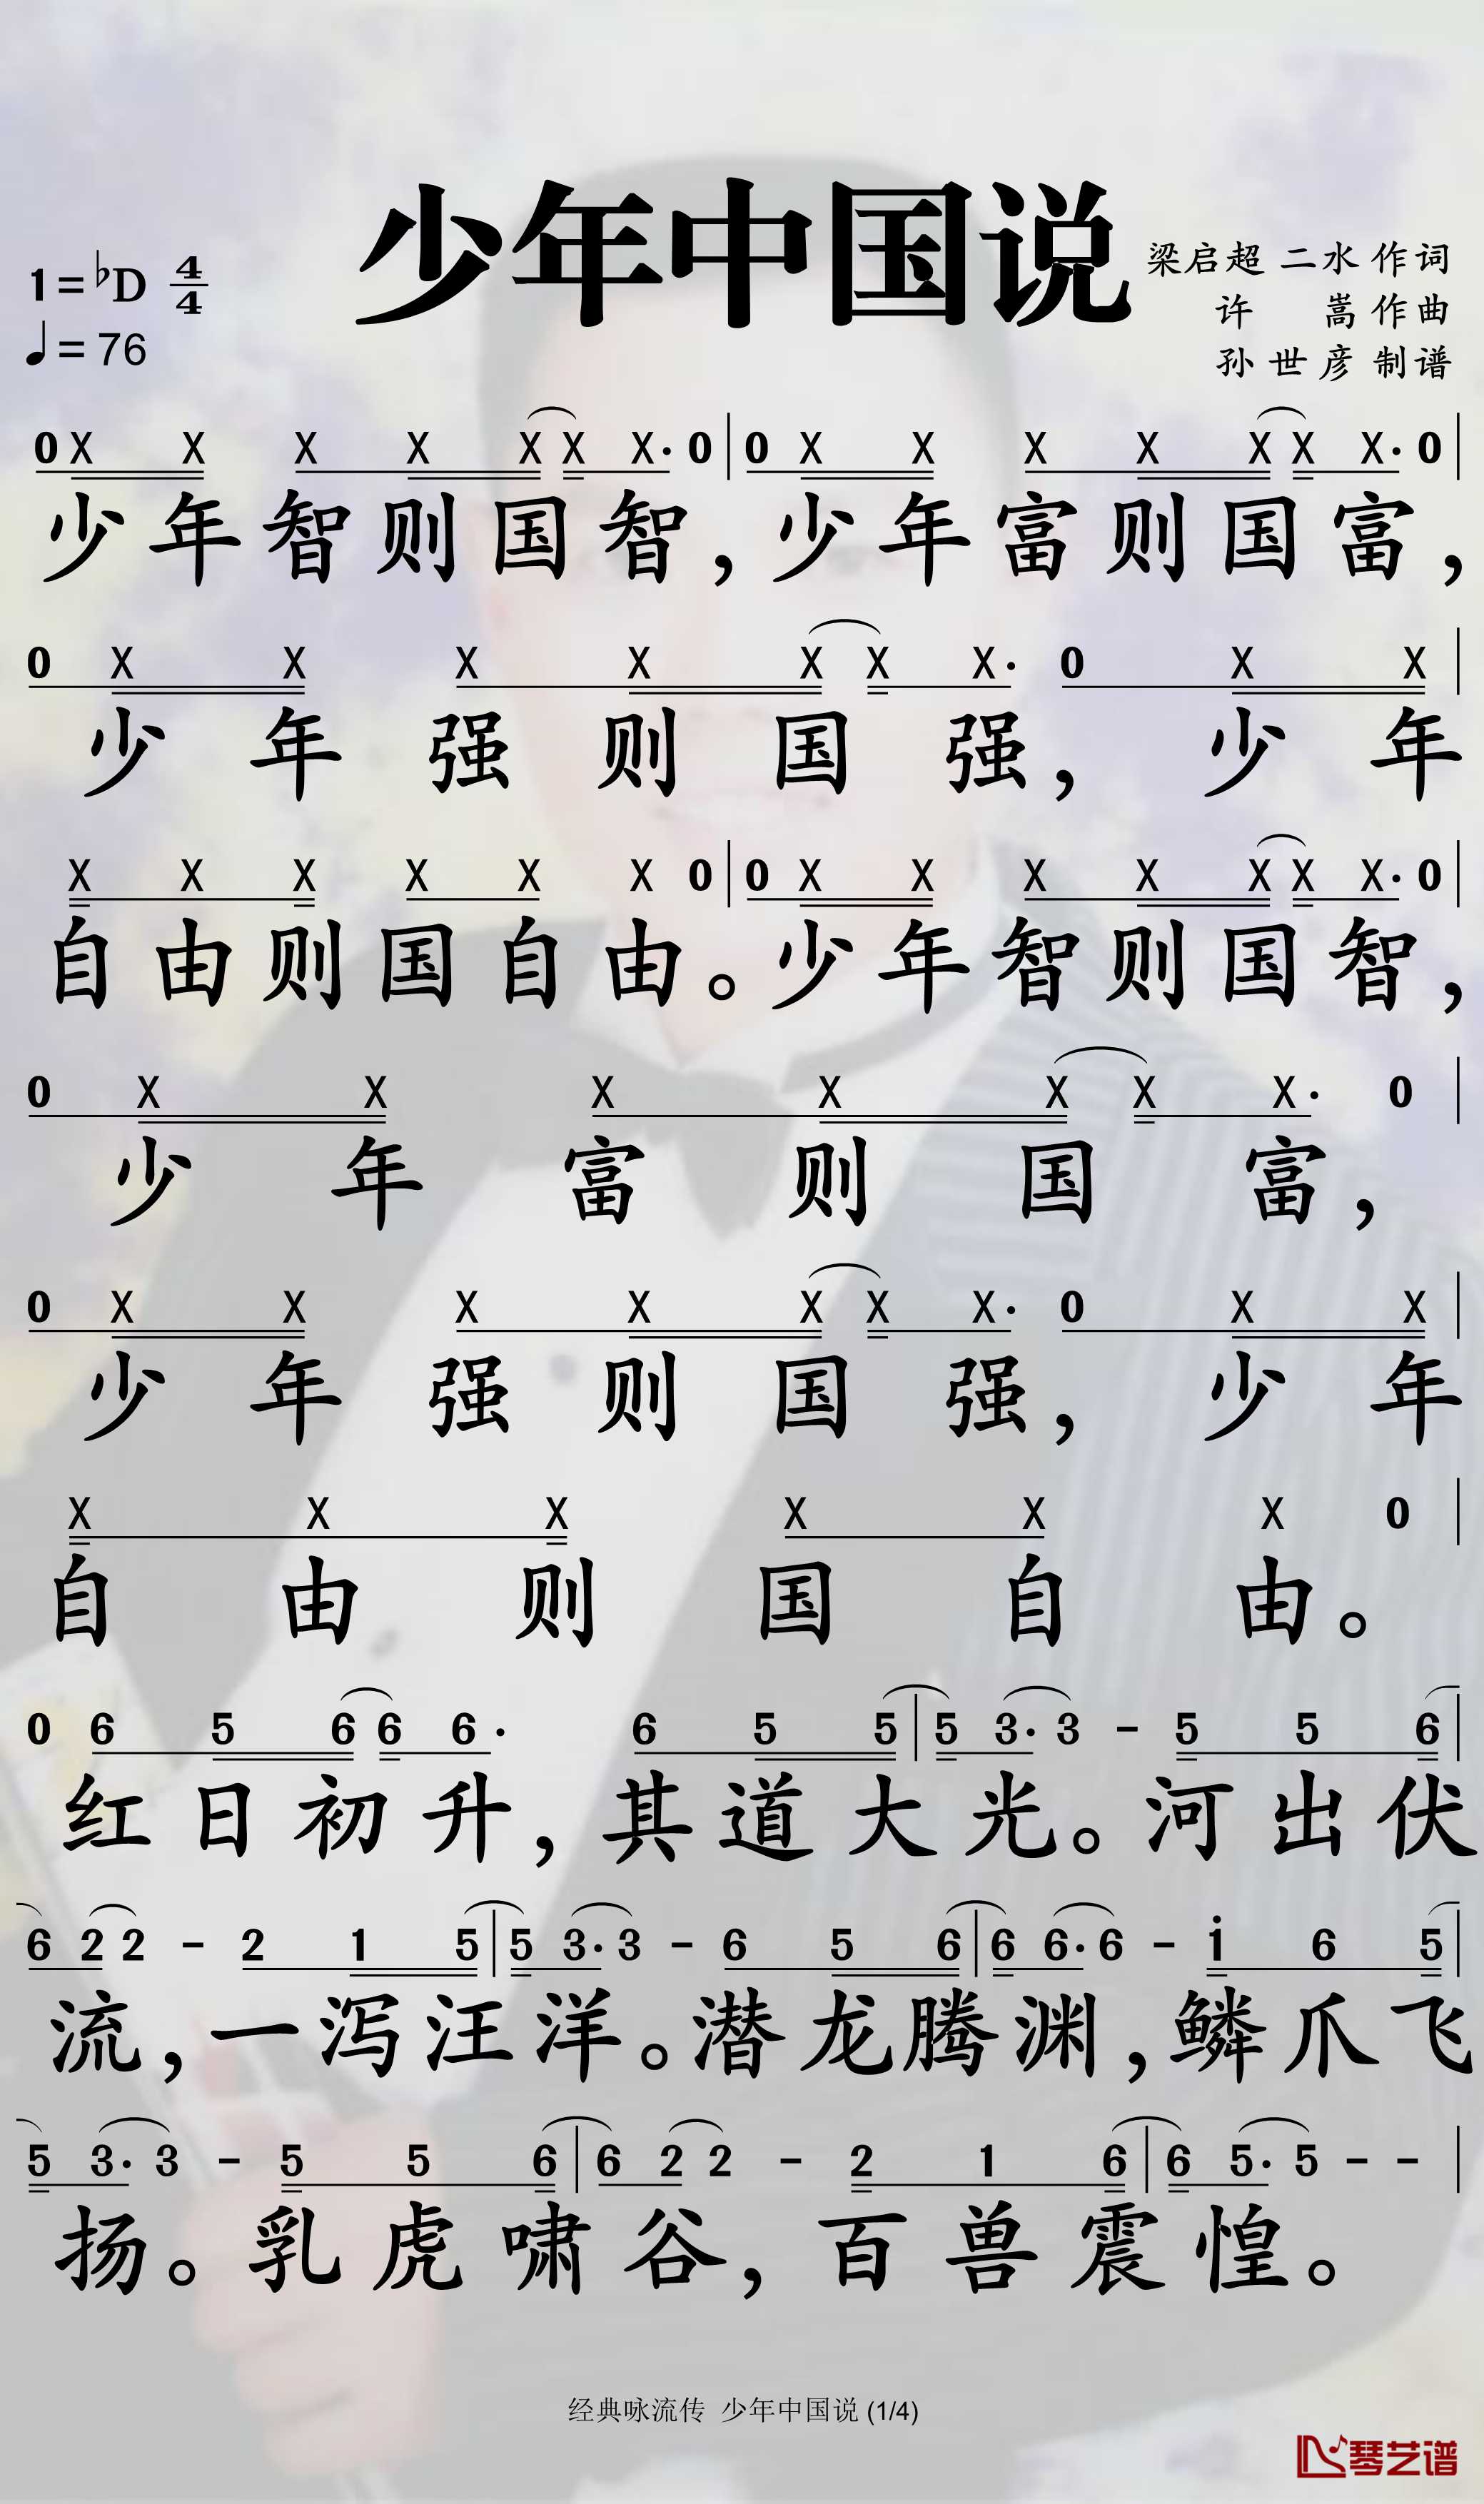 少年中国说
1=♭D 4/4
♩=76
梁启超 二水 作词
许 嵩 作曲
孙世彦 制谱
0 X X X X X X X· 0 | 0 X X X X X X X· 0 |
少年智则国智，少年富则国富，
0 X X X X X X X· 0 X X |
少年强则国强，少年
X X X X X X 0 | 0 X X X X X X X· 0 |
自由则国自由。少年智则国智，
0 X X X X X X X· 0 |
少年富则国富，
0 X X X X X X X· 0 X X |
少年强则国强，少年
X X X X X X 0 |
自由则国自由。
0 6 5 6 6 6· 6 5 5 | 5 3· 3 - 5 5 6 |
红日初升，其道大光。河出伏
6 2 2 - 2 1 5 | 5 3· 3 - 6 5 6 | 6 6· 6 - i 6 5 |
流，一泻汪洋。潜龙腾渊，鳞爪飞
5 3· 3 - 5 5 6 | 6 2 2 - 2 1 6 | 6 5· 5 - - |
扬。乳虎啸谷，百兽震惶。
经典咏流传 少年中国说 (1/4)
琴艺谱